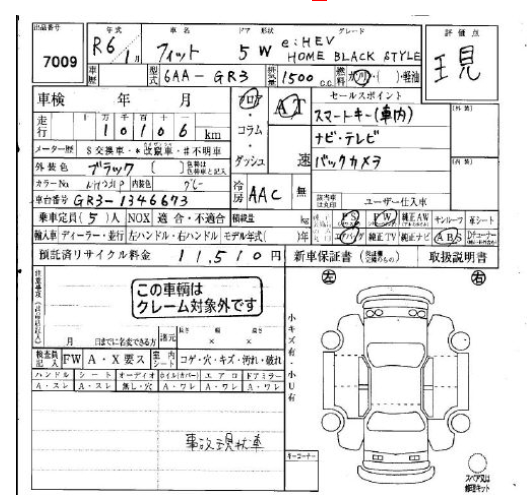 出品番号 年式 車名 ドア 形状 グレード 評価点
7009 R6/1月 フィット 5 W e:HEV HOME BLACK STYLE 現
車歴 型式 6AA-GR3 排気量 1500 c.c. 燃料 ガソ・( )・軽油
車検 年 月 フロア・コラム・ダッシュ AT 速 セールスポイント
走行 十万千百十一 10106 km スマートキー(車内)
ナビ・テレビ
メーター歴 S 交換車・*改竄車・#不明車 バックカメラ
外装色 ブラック [ ]
カラーNo. 内装色 グレー 冷房 AAC 無
車台番号 GR3-1346673 ユーザー仕入車
乗車定員(5)人 NOX 適合・不適合 積載量 kg PS PW 純正AW サンルーフ 革シート
輸入車 ディーラー・並行 左ハンドル・右ハンドル モデル年式( )年 エアバッグ 純正TV 純正ナビ ABS
預託済リサイクル料金 11,510円 新車保証書 取扱説明書
この車輌は
クレーム対象外です
左 右
月 日までに名変できる方 諸元 長さ 幅 高さ
× ×
検査員記入 FW A・X要ス 室内シート コゲ・穴・キズ・汚れ・破れ
ハンドル シート オーディオ ホイル(カバー) エアロ ドアミラー
A・スレ A・スレ 無し・穴 A・ワレ A・ワレ A・ワレ
小キズ有
小U有
事故現状車
キーコーナー
スペア又は
修理キット